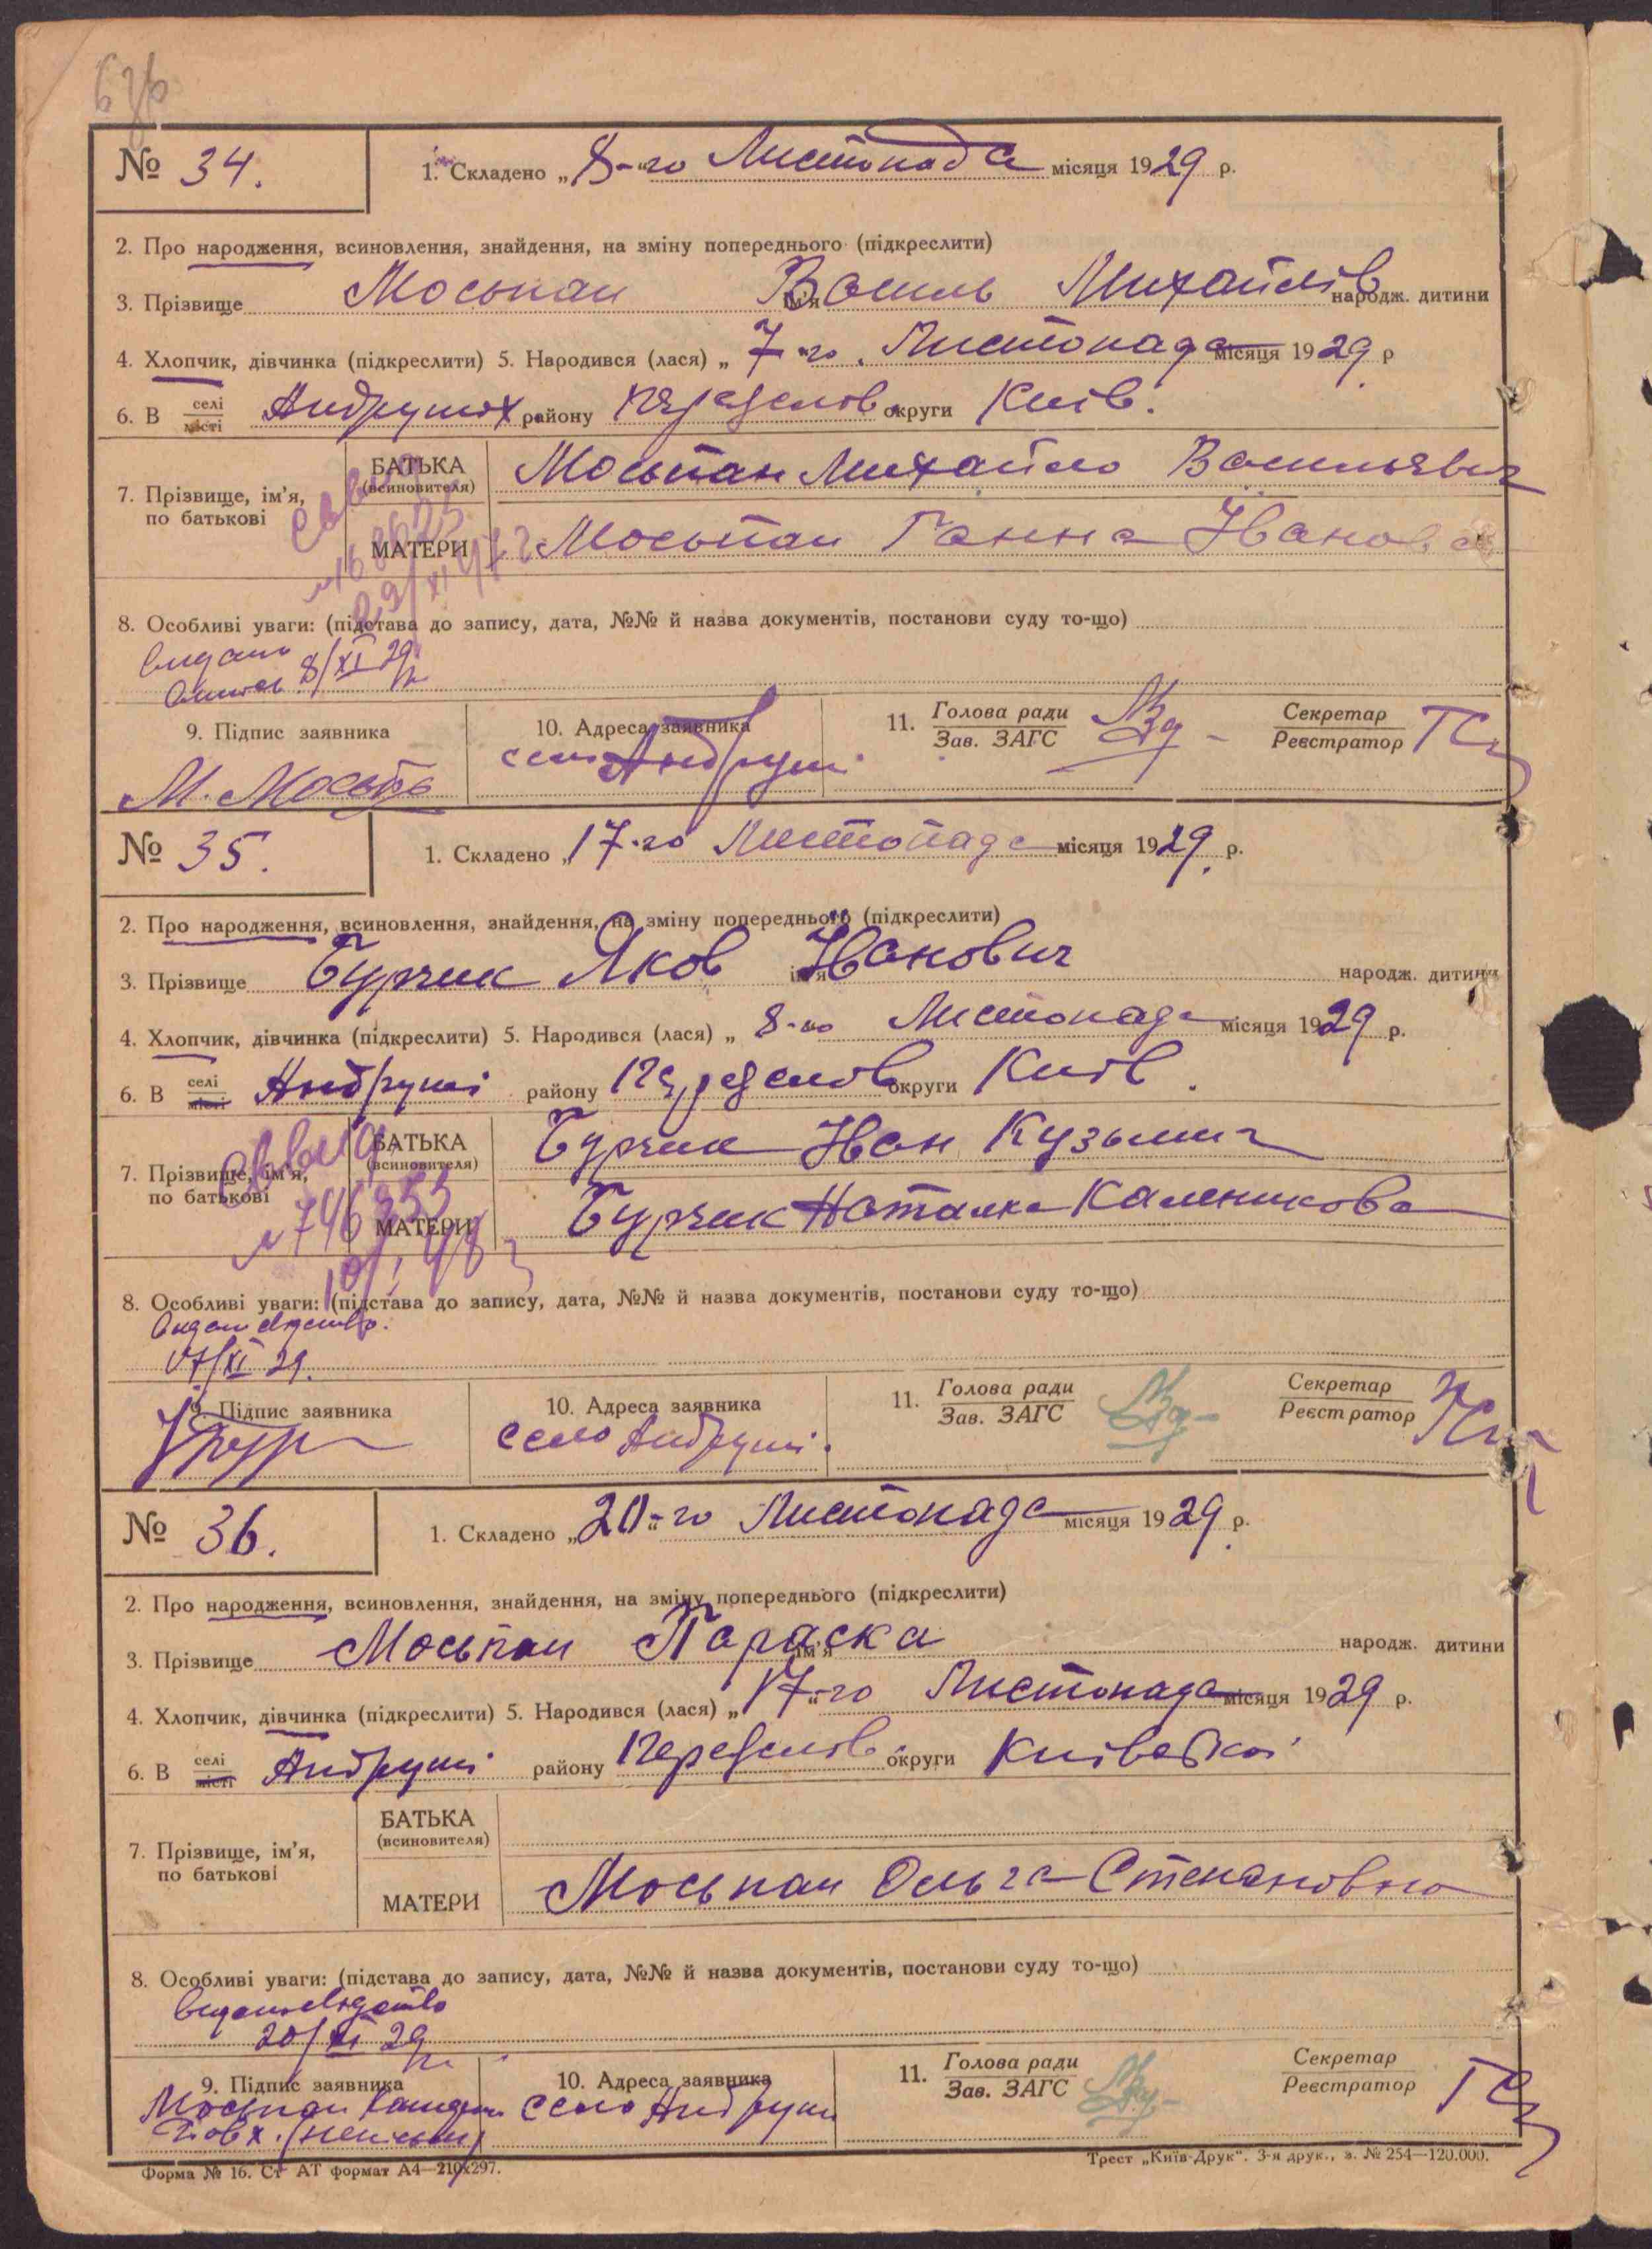 № 34. 1. Складено „8-го Листопада місяця 1929 р.
2. Про народження, всиновлення, знайдення, на зміну попереднього (підкреслити)
3. Прізвище Моспан ім'я Василь Михайлів народж. дитини
4. Хлопчик, дівчинка (підкреслити) 5. Народився (лася) „7-го Листопада місяця 1929 р
6. В селі місті Андрушах району Переяслов. округи Київ.
7. Прізвище, ім'я, по батькові
БАТЬКА (всиновителя) Моспан Михайло Васильевич
МАТЕРИ Моспан Ганна Іванова
8. Особливі уваги: (підстава до запису, дата, №№ й назва документів, постанови суду то-що)
8/XI 29
9. Підпис заявника 10. Адреса заявника 11. Голова ради Зав. ЗАГС Секретар Реєстратор
село Андруші
№ 35. 1. Складено „17-го Листопада місяця 1929 р.
2. Про народження, всиновлення, знайдення, на зміну попереднього (підкреслити)
3. Прізвище Бурчик Яков ім'я Іванович народж. дитини
4. Хлопчик, дівчинка (підкреслити) 5. Народився (лася) „8-го Листопада місяця 1929 р.
6. В селі місті Андруші району Переяслов округи Київ.
7. Прізвище, ім'я, по батькові
БАТЬКА (всиновителя) Бурчик Іван Кузьмич
МАТЕРИ Бурчик Наталка Каленикова
8. Особливі уваги: (підстава до запису, дата, №№ й назва документів, постанови суду то-що)
17/XI 29.
9. Підпис заявника 10. Адреса заявника 11. Голова ради Зав. ЗАГС Секретар Реєстратор
село Андруші.
№ 36. 1. Складено „20-го Листопада місяця 1929 р.
2. Про народження, всиновлення, знайдення, на зміну попереднього (підкреслити)
3. Прізвище Моспан Параска ім'я народж. дитини
4. Хлопчик, дівчинка (підкреслити) 5. Народився (лася) „17-го Листопада місяця 1929 р.
6. В селі місті Андруші району Переяслов. округи Київської
7. Прізвище, ім'я, по батькові
БАТЬКА (всиновителя)
МАТЕРИ Моспан Ольга Степановна
8. Особливі уваги: (підстава до запису, дата, №№ й назва документів, постанови суду то-що)
20/XI 29
9. Підпис заявника 10. Адреса заявника 11. Голова ради Зав. ЗАГС Секретар Реєстратор
село Андруши
Форма № 16. Ст АТ формат А4—210х297. Трест „Київ-Друк". 3-я друк., з. № 254—120.000.